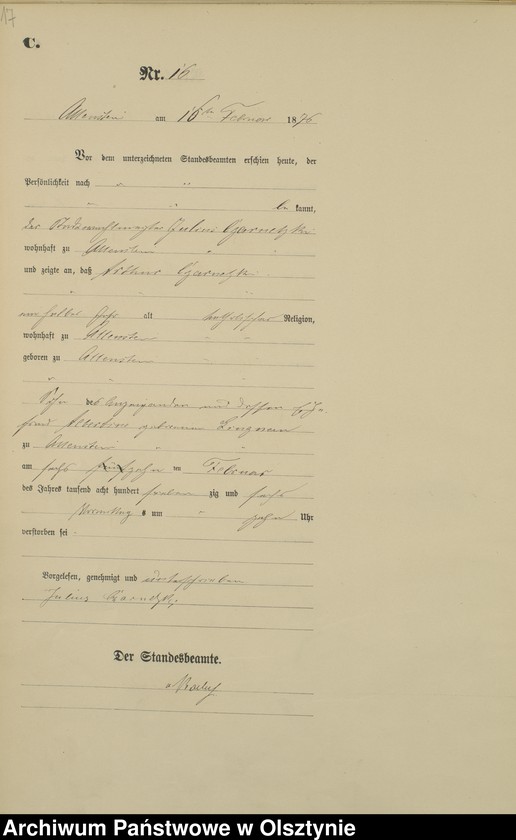 17
C.
Nr. 16
Allenstein am 16ten Februar 1876
Vor dem unterzeichneten Standesbeamten erschien heute, der
Persönlichkeit nach
be kannt,
der Julius Czarnetzki
wohnhaft zu Allenstein
und zeigte an, daß Arthur Czarnetzki
ein halbes Jahr alt katholischer Religion,
wohnhaft zu Allenstein
geboren zu Allenstein
Sohn des Anzeigenden und dessen Ehe-
frau geborenen
zu Allenstein
am sechszehn ten Februar
des Jahres tausend acht hundert sieben zig und sechs
Vormittags um zehn Uhr
verstorben sei
Vorgelesen, genehmigt und unterschrieben
Julius Czarnetzki
Der Standesbeamte.
Archiwum Państwowe w Olsztynie